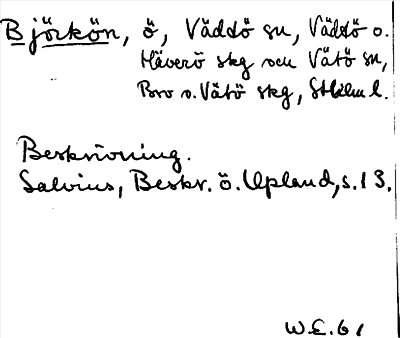 Björkön, ö, Väddö sn, Väddö o.
Häverö skg och Vätö sn,
Bro o. Vätö skg, Sthlm l.
Beskrivning.
Salvius, Beskr. ö. Upland, s. 13.
W.E. 61